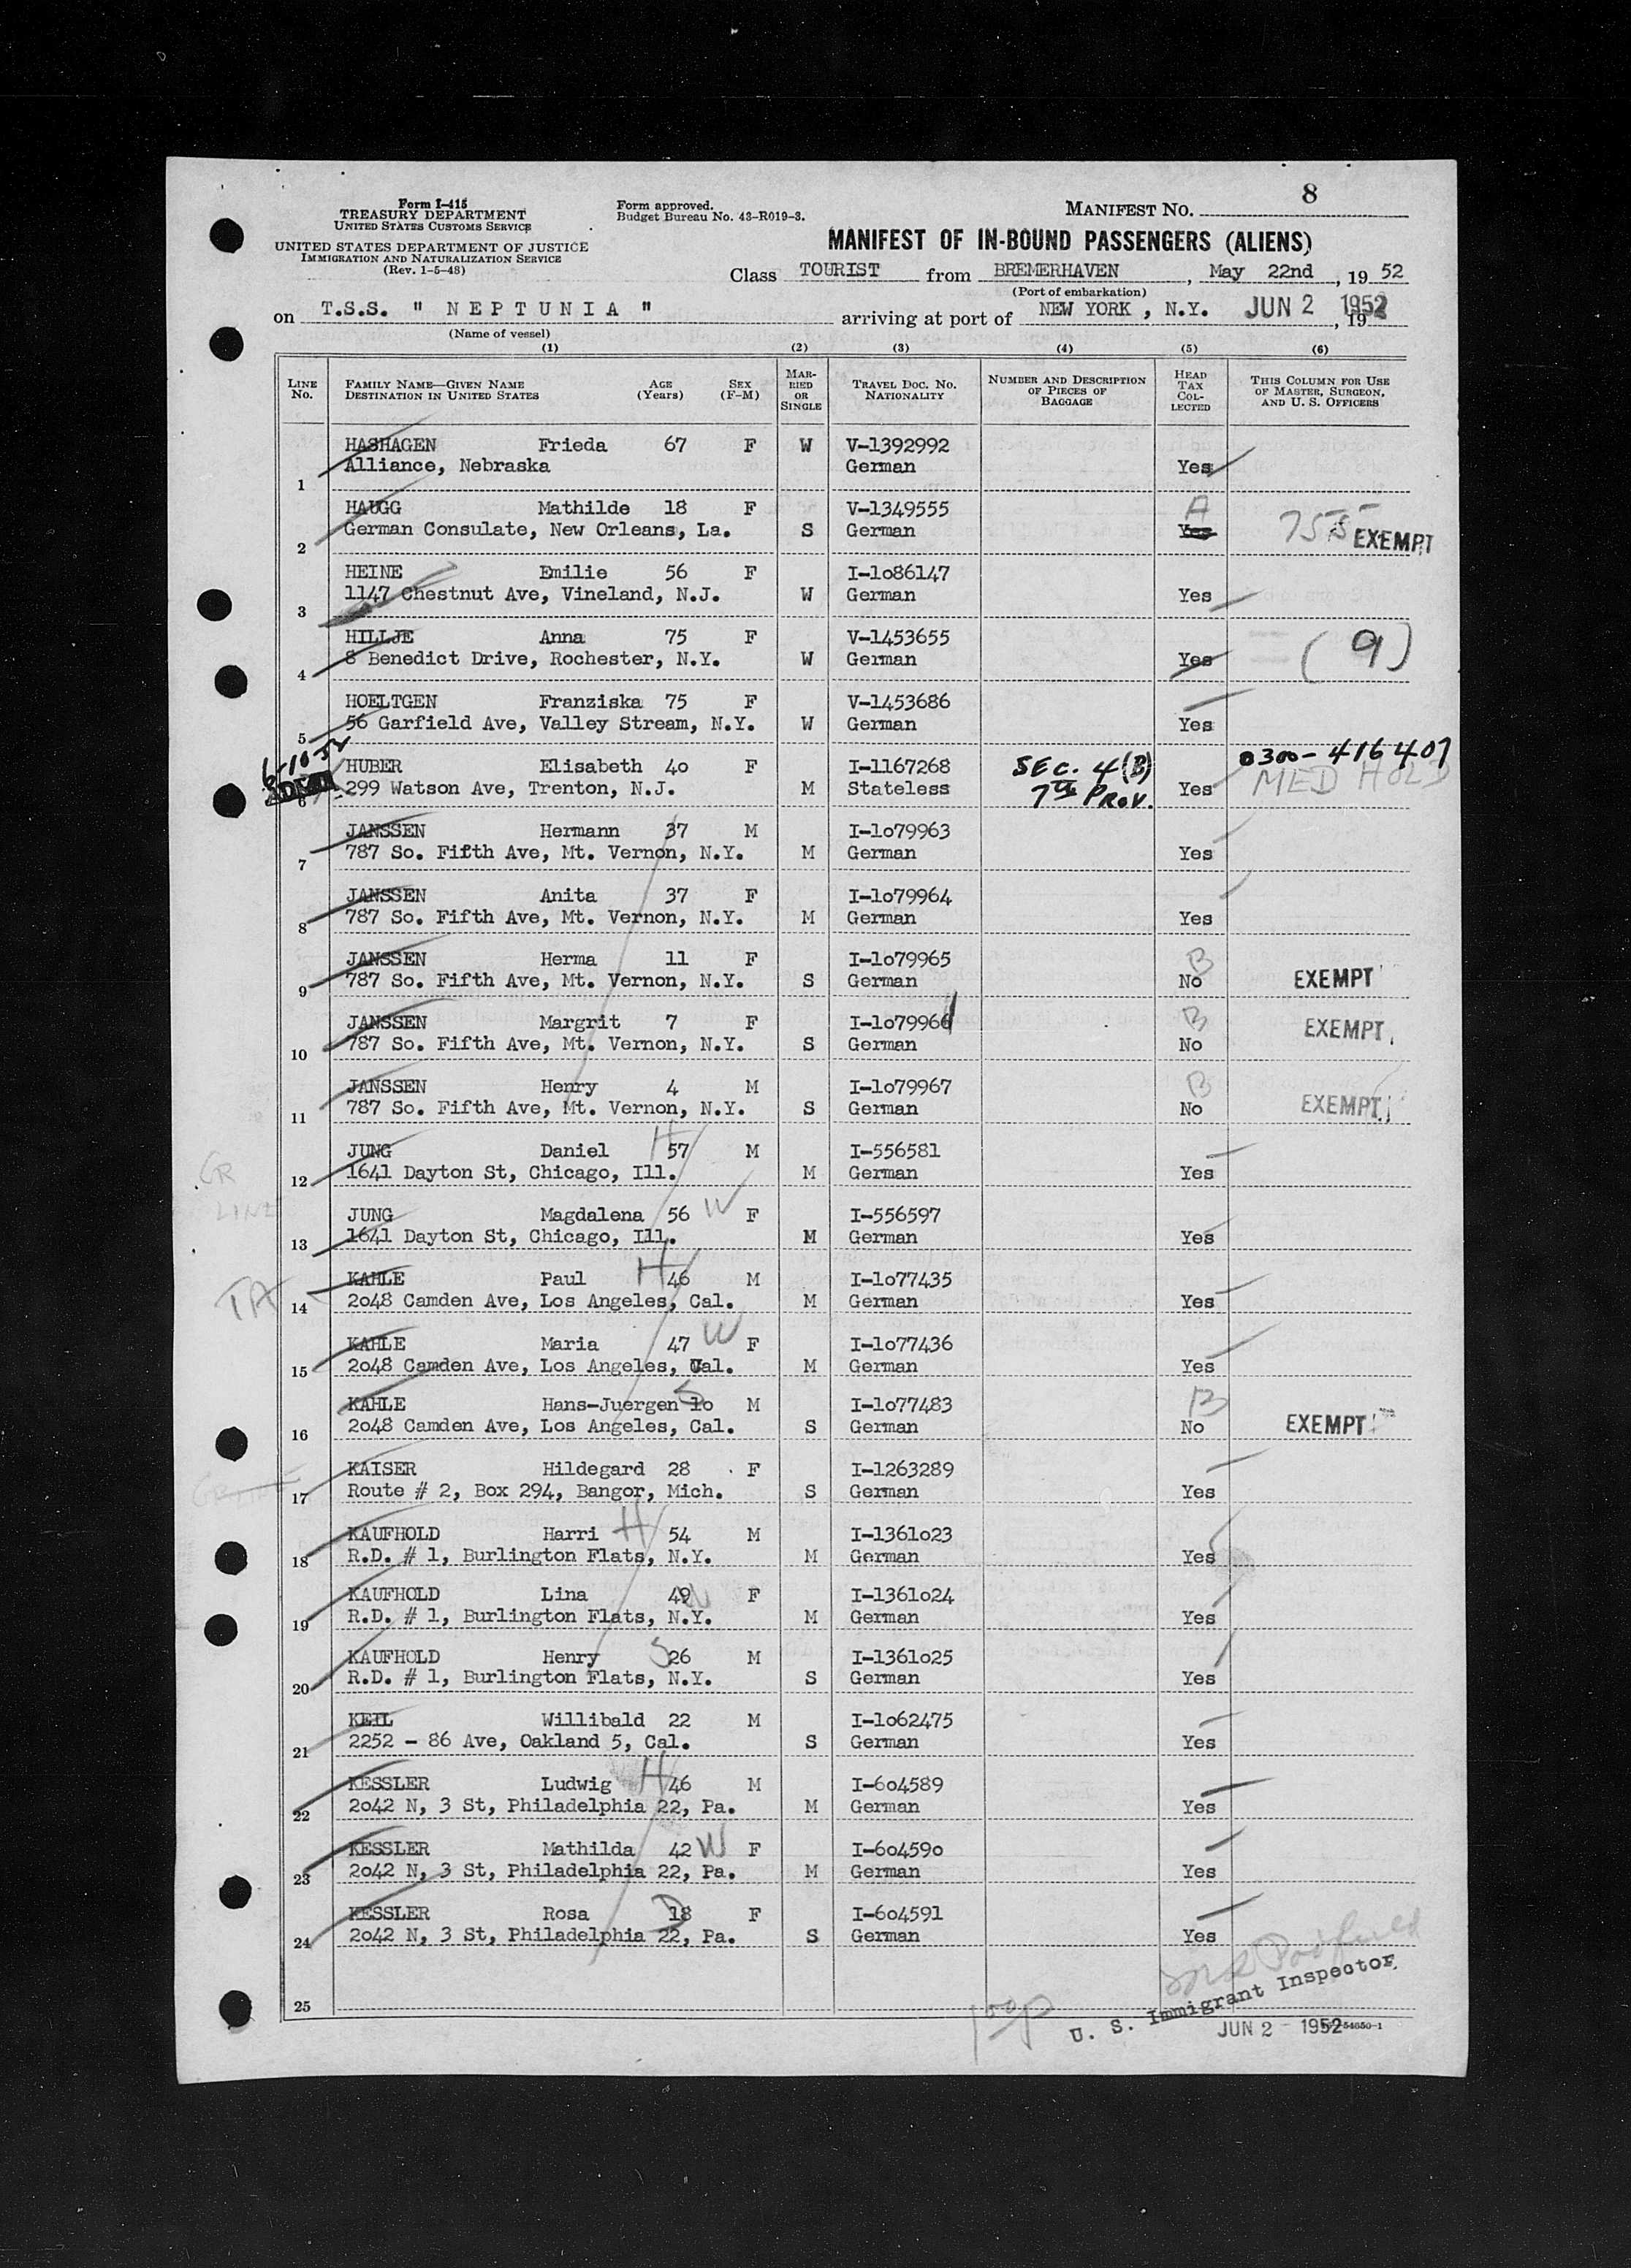 Form I-415
TREASURY DEPARTMENT
UNITED STATES CUSTOMS SERVICE
UNITED STATES DEPARTMENT OF JUSTICE
IMMIGRATION AND NATURALIZATION SERVICE
(Rev. 1-5-48)
Form approved.
Budget Bureau No. 43-R019-3.
MANIFEST NO. 8
MANIFEST OF IN-BOUND PASSENGERS (ALIENS)
Class TOURIST from BREMERHAVEN, May 22nd, 1952
(Port of embarkation)
on T.S.S. " N E P T U N I A " arriving at port of NEW YORK, N.Y. JUN 2 1952, 19
(Name of vessel)
(1) (2) (3) (4) (5) (6)
LINE NO. FAMILY NAME—GIVEN NAME DESTINATION IN UNITED STATES AGE (Years) SEX (F-M) MARRIED OR SINGLE TRAVEL DOC. NO. NATIONALITY NUMBER AND DESCRIPTION OF PIECES OF BAGGAGE HEAD TAX COLLECTED THIS COLUMN FOR USE OF MASTER, SURGEON, AND U. S. OFFICERS
HASHAGEN Frieda 67 F W V-1392992
1 Alliance, Nebraska German Yes
HAUGG Mathilde 18 F V-1349555 A
2 German Consulate, New Orleans, La. S German Yes 755 EXEMPT
HEINE Emilie 56 F I-1o86147
3 1147 Chestnut Ave, Vineland, N.J. W German Yes
HILLJE Anna 75 F V-1453655
4 8 Benedict Drive, Rochester, N.Y. W German Yes (9)
HOELTGEN Franziska 75 F V-1453686
5 56 Garfield Ave, Valley Stream, N.Y. W German Yes
6-10-52 HUBER Elisabeth 4o F I-1167268 SEC. 4 (B) 0300-416407
6 299 Watson Ave, Trenton, N.J. M Stateless 7th PROV. Yes MED HOLD
JANSSEN Hermann 37 M I-1o79963
7 787 So. Fifth Ave, Mt. Vernon, N.Y. M German Yes
JANSSEN Anita 37 F I-1o79964
8 787 So. Fifth Ave, Mt. Vernon, N.Y. M German Yes
JANSSEN Herma 11 F I-1o79965 B
9 787 So. Fifth Ave, Mt. Vernon, N.Y. S German No EXEMPT
JANSSEN Margrit 7 F I-1o79966 B
10 787 So. Fifth Ave, Mt. Vernon, N.Y. S German No EXEMPT
JANSSEN Henry 4 M I-1o79967 B
11 787 So. Fifth Ave, Mt. Vernon, N.Y. S German No EXEMPT
JUNG Daniel H 57 M I-556581
GR 12 1641 Dayton St, Chicago, Ill. M German Yes
LINE
JUNG Magdalena 56 W F I-556597
13 1641 Dayton St, Chicago, Ill. M German Yes
KAHLE Paul H 46 M I-1o77435
TA 14 2o48 Camden Ave, Los Angeles, Cal. M German Yes
KAHLE Maria 47 W F I-1o77436
15 2o48 Camden Ave, Los Angeles, Cal. M German Yes
KAHLE Hans-Juergen S 1o M I-1o77483 B
16 2o48 Camden Ave, Los Angeles, Cal. S German No EXEMPT
KAISER Hildegard 28 F I-1263289
17 Route # 2, Box 294, Bangor, Mich. S German Yes
KAUFHOLD Harri H 54 M I-1361o23
18 R.D. # 1, Burlington Flats, N.Y. M German Yes
KAUFHOLD Lina 49 W F I-1361o24
19 R.D. # 1, Burlington Flats, N.Y. M German Yes
KAUFHOLD Henry S 26 M I-1361o25
20 R.D. # 1, Burlington Flats, N.Y. S German Yes
KEIL Willibald 22 M I-1o62475
21 2252 - 86 Ave, Oakland 5, Cal. S German Yes
KESSLER Ludwig H 46 M I-6o4589
22 2o42 N, 3 St, Philadelphia 22, Pa. M German Yes
KESSLER Mathilda 42 W F I-6o459o
23 2o42 N, 3 St, Philadelphia 22, Pa. M German Yes
KESSLER Rosa D 18 F I-6o4591
24 2o42 N, 3 St, Philadelphia 22, Pa. S German Yes
25
U. S. Immigrant Inspector
JUN 2 - 1952